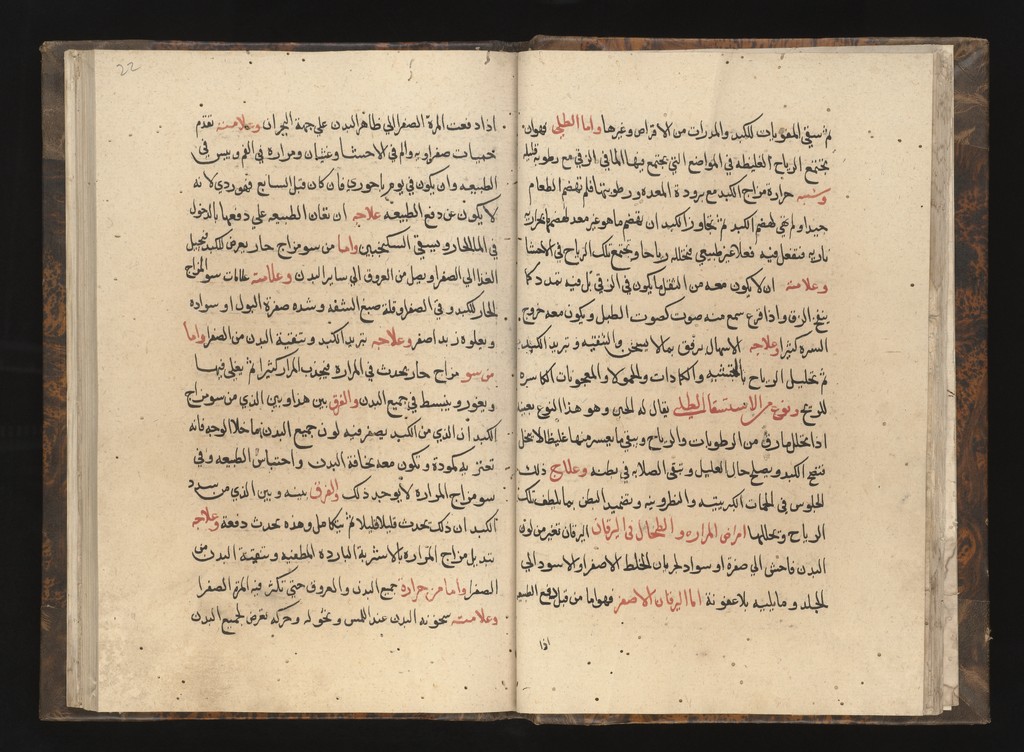 ثم سقي المقويات للكبد والمدرات من الاقراص وغيرها واما الطبلي فهوان
تجتمع الرياح الغليظه في المواضع التي يجتمع فيها الما في الزقي مع رطوبه قليله
وسببه حرارة مزاج الكبد مع برودة المعده ورطوبتها فلم تهضم الطعام
جيدا ولم تهي لهضم الكبد ثم تجاوز الكبد ان يهضم ما هو غير معد لهضمها بحراره
ناريه فتفعل فيه فعلا غير طبيعي فتحلله رياحا وتجتمع تلك الرياح في الاحشا
وعلامته ان لا يكون معه من الثقل ما يكون في الزقي بل فيه تمدد كما
ينفخ الزق واذا قرع سمع منه صوت كصوت الطبل ويكون معه خروج
السره كثيرا وعلاجه الاسهال برفق بما لا يسخن والتنقيه وتبريد الكبد
ثم تحليل الرياح والكمادات والحمولات والمعجونات الكاسره
للريح ونوع من الاستسقا الطبلي يقال له الحبن وهو هذا النوع بعينه
اذا تحلل مارق من الرطوبات والرياح وبقي ما يعسر منها غليظا لا يتحلل
فتصح الكبد ويصلح حال العليل وتبقى الصلابه في بطنه وعلاج ذلك
الجلوس في الحمات الكبريتيه والنطرونيه وتضميد البطن بما يلطف تلك
الرياح ويحللها امراض المراره والطحال في اليرقان اليرقان تغير من لون
البدن فاحش الي صفرة او سواد لجريان الخلط الاصفر او الاسود الي
الجلد وما يليه بلا عفونة اما اليرقان الاصفر فهو اما من قبل دفع الطبيعه
اذا
22
اذا دفعت المرة الصفرا الي ظاهر البدن علي جهة البحران وعلامته تقدم
حميات صفراويه والم في الاحشا وغثيان ومراره في الفم ويبس في
الطبيعه وان يكون في يوم باحوري فان كان قبل السابع فهو ردي لانه
لا يكون عن دفع الطبيعه علاجه ان تعان الطبيعه علي دفعها بالدخول
في الما الحار ويسقي السكنجبين واما من سو مزاج حار يعرض للكبد فيحيل
الغذا الي الصفرا ويصل من العروق الي ساير البدن وعلامته علامات سو المزاج
الحار للكبد وفي الصفرا وقلة صبغ الشفه وشده صفرة البول او سواده
ويعلوه زبد اصفر وعلاجه تبريد الكبد وتنقية البدن من الصفرا واما
من سو مزاج حار يحدث في المرارة فتجذب المرار كثيرا ثم يغلي فيها
ويفور وينبسط في جميع البدن والفرق بين هذا وبين الذي من سو مزاج
الكبد ان الذي من الكبد يصفر فيه لون جميع البدن ما خلا الوجه فانه
تعتريه كمودة وتكون معه نحافة البدن واحتباس الطبيعه وفي
سو مزاج المرارة لا يوجد ذلك الفرق بينه وبين الذي من سدد
الكبد ان ذلك يحدث قليلا قليلا ثم يتكامل وهذه تحدث دفعة وعلاجه
تبديل مزاج المرارة بالاشربة البارده المطفيه وتنقية البدن من
الصفرا واما من حرارة جميع البدن والعروق حتي تكثر فيه المرة الصفرا
وعلامته سخونه البدن عند اللمس ونحوله وحكه تعرض لجميع البدن